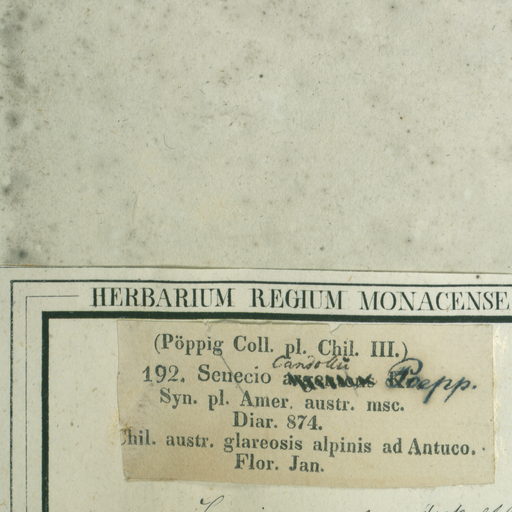 HERBARIUM REGIUM MONACENSE
(Pöppig Coll. pl. Chil. III.)
Candollii
192. Senecio Poepp.
Syn. pl. Amer. austr. msc.
Diar. 874.
Chil. austr. glareosis alpinis ad Antuco.
Flor. Jan.